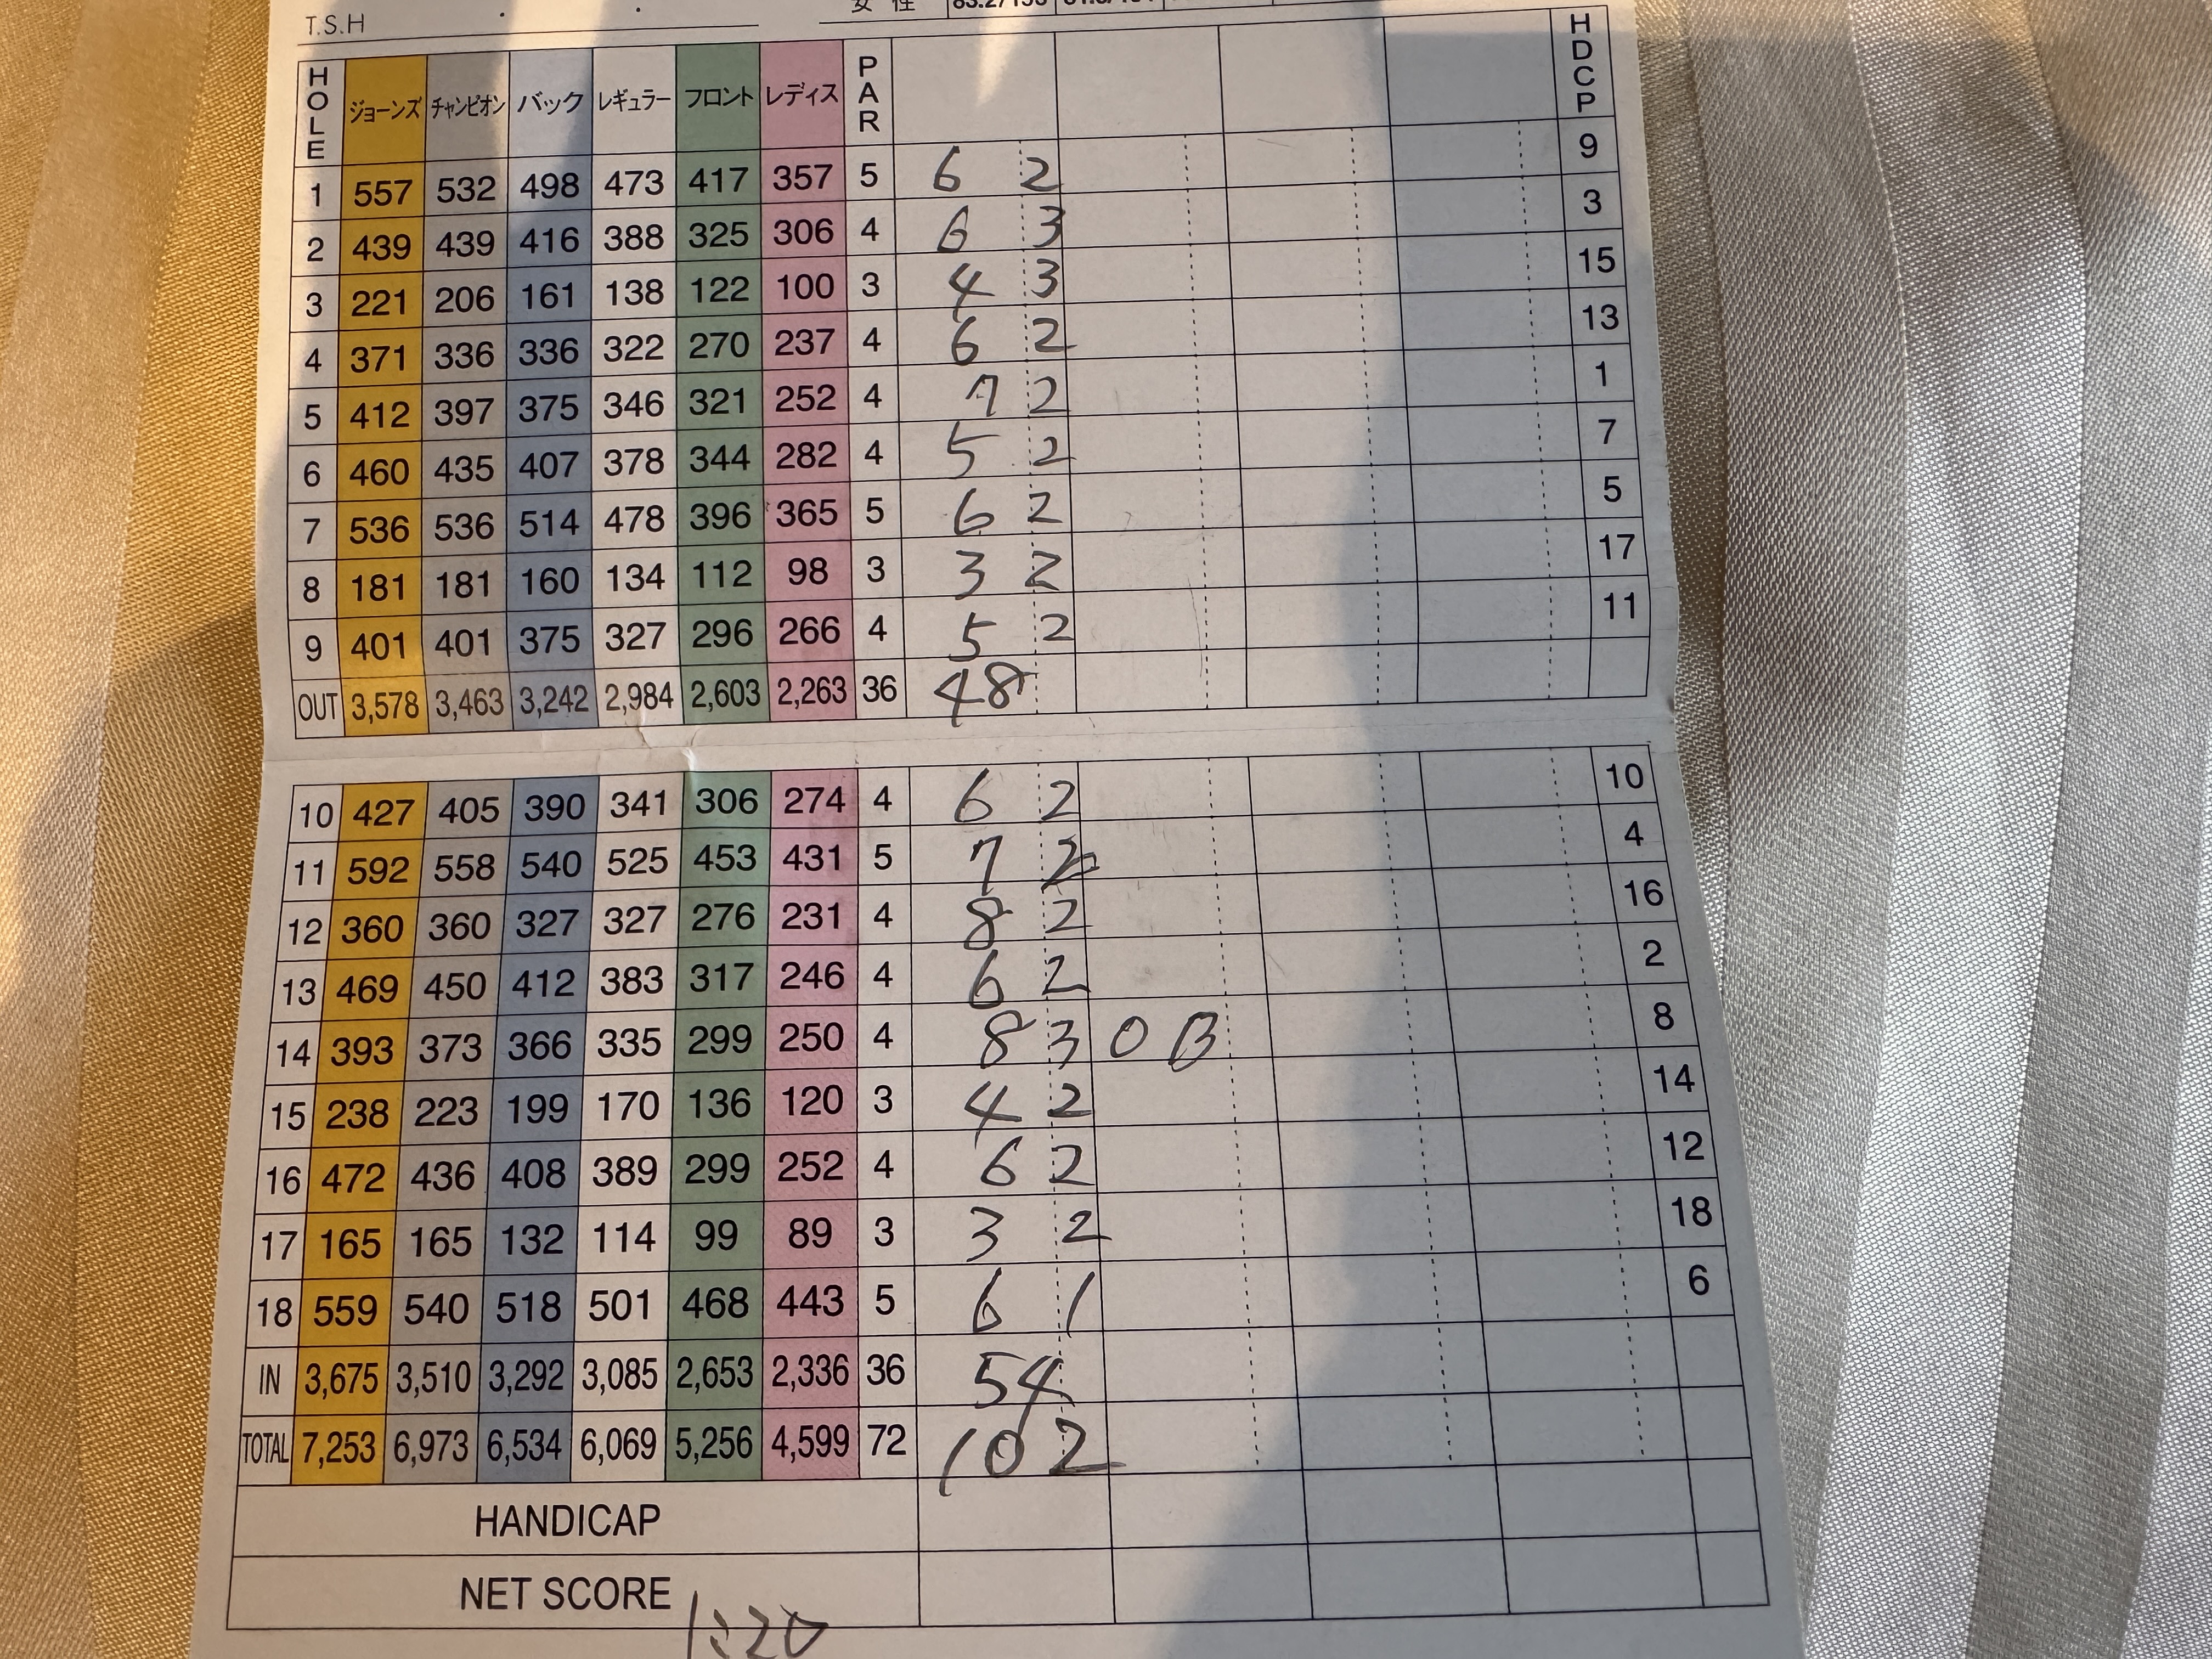 T.S.H
女 性
HOLE ジョーンズ チャンピオン バック レギュラー フロント レディス PAR HDCP
1 557 532 498 473 417 357 5 6 2 9
2 439 439 416 388 325 306 4 6 3 3
3 221 206 161 138 122 100 3 4 3 15
4 371 336 336 322 270 237 4 6 2 13
5 412 397 375 346 321 252 4 7 2 1
6 460 435 407 378 344 282 4 5 2 7
7 536 536 514 478 396 365 5 6 2 5
8 181 181 160 134 112 98 3 3 2 17
9 401 401 375 327 296 266 4 5 2 11
OUT 3,578 3,463 3,242 2,984 2,603 2,263 36 48
10 427 405 390 341 306 274 4 6 2 10
11 592 558 540 525 453 431 5 7 2 4
12 360 360 327 327 276 231 4 8 2 16
13 469 450 412 383 317 246 4 6 2 2
14 393 373 366 335 299 250 4 8 3 OB 8
15 238 223 199 170 136 120 3 4 2 14
16 472 436 408 389 299 252 4 6 2 12
17 165 165 132 114 99 89 3 3 2 18
18 559 540 518 501 468 443 5 6 1 6
IN 3,675 3,510 3,292 3,085 2,653 2,336 36 54
TOTAL 7,253 6,973 6,534 6,069 5,256 4,599 72 102
HANDICAP
NET SCORE
1:20